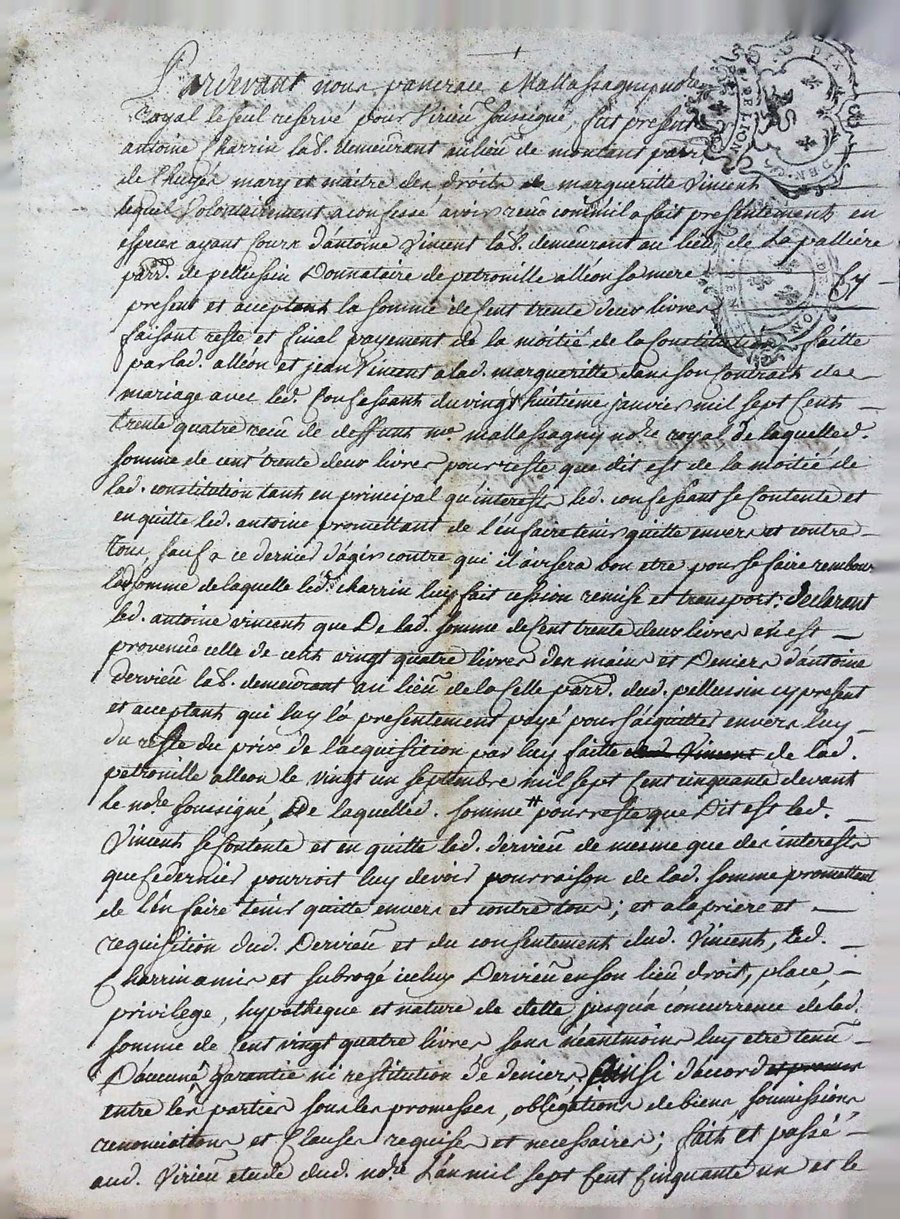 Pardevant nous pancrace Mallassagny no.re
royal le seul reservé pour Virieu soussigné, fut present
antoine Charrin lab. demeurant au lieu de montant parr.
de Chuyer mary et maitre des droits de margueritte Vincent
lequel volontairement a confessé avoir receu comm'il a fait presentement en
especes ayant cours d'antoine Vincent lab. demeurant au lieu de La palliere
parr. de pellussin Donnataire de petronille alléon sa mere cy
present et acceptant la somme de Cent trente deux livres
faisant reste et final payement de la moitié de la Constitution faitte
par lad. alléon et jean Vincent a lad. margueritte dans son Contract de
mariage avec led. Confessant du vingt huitieme janvier mil sept Cent
trente quatre receu de deffunt me. mallassagny no.re royal de laquelle d.
somme de cent trente deux livres pour reste que dit est de la moitié de
lad. constitution tant en principal qu'interests led. confessant se Contente et
en quitte led. antoine promettant de l'en faire tenir quitte envers et contre
tous, sauf a ce dernier d'agir contre qui il avisera bon etre pour se faire rembourser
lad. somme de laquelle led. charrin luy fait cession remise et transport. declarant
led. antoine vincent que De lad. somme de Cent trente deux livres en est
provenüe celle de cent vingt quatre livres des mains et Deniers d'antoine
dervieu lab. demeurant au lieu de la Celle parr. dud. pellussin cy present
et acceptant qui luy l'a presentement payé pour s'aquitter envers luy
du reste du prix de l'acquisition par luy faitte de lad.
petronille alleon le vingt un septembre mil sept Cent cinquante devant
le no.re soussigné, De laquelle d. somme pour reste que Dit est led.
Vincent se Contente et en quitte led. dervieu de mesme que des interests
que Ce dernier pourroit luy devoir pour raison de lad. somme promettant
de l'en faire tenir quitte envers et contre tous; et a la priere et
requisition dud. Dervieu et du consentement dud. Vincent, led.
Charrin a mis et subrogé iceluy Dervieu en son lieu droit, place,
privilege, hypotheque et nature de dette jusqu'a concurrence de lad.
somme de Cent vingt quatre livres sans néantmoins luy etre tenu
D'aucune garantie ni restitution de deniers. Ainsi d'accord
entre les parties sous les promesses, obligations de biens, soumissions
renonciations et Clauses requises et necessaires; fait et passé
aud. Virieu etude dud. no.re L'an mil sept Cent Cinquante un et le